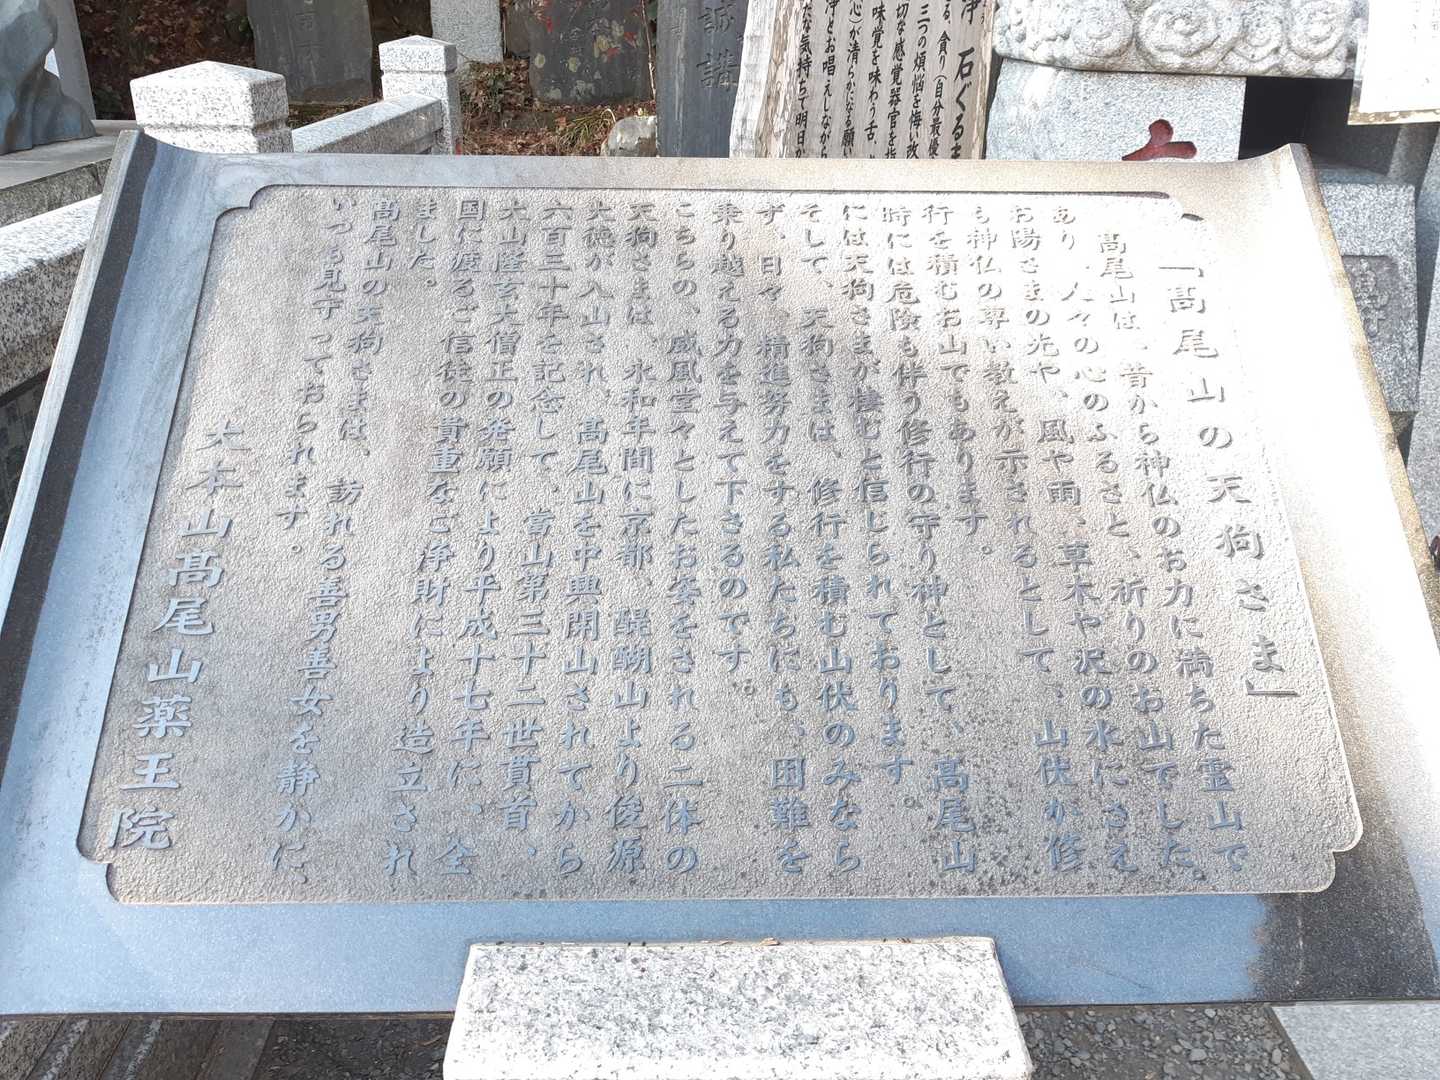 「髙尾山の天狗さま」
髙尾山は、昔から神仏のお力に満ちた霊山で
あり、人々の心のふるさと、祈りのお山でした。
お陽さまの光や、風や雨、草木や沢の水にさえ
も神仏の尊い教えが示されるとして、山伏が修
行を積むお山でもあります。
時には危険も伴う修行の守り神として、髙尾山
には天狗さまが棲むと信じられております。
そして、天狗さまは、修行を積む山伏のみなら
ず、日々、精進努力をする私たちにも、困難を
乗り越える力を与えて下さるのです。
こちらの、威風堂々としたお姿をされる二体の
天狗さまは、永和年間に京都、醍醐山より俊源
大徳が入山され、髙尾山を中興開山されてから
六百三十年を記念して、當山第三十二世貫首、
大山隆玄大僧正の発願により平成十七年に、全
国に渡るご信徒の貴重なご浄財により造立され
ました。
髙尾山の天狗さまは、訪れる善男善女を静かに
いつも見守っておられます。
大本山髙尾山薬王院
浄 石ぐる
る、貪り（自分最優
三つの煩悩を悔い改
切な感覚器官を指
味覚を味わう舌、
心）が清らかになる願い
浄とお唱えしながら
な気持ちで明日か
誠講